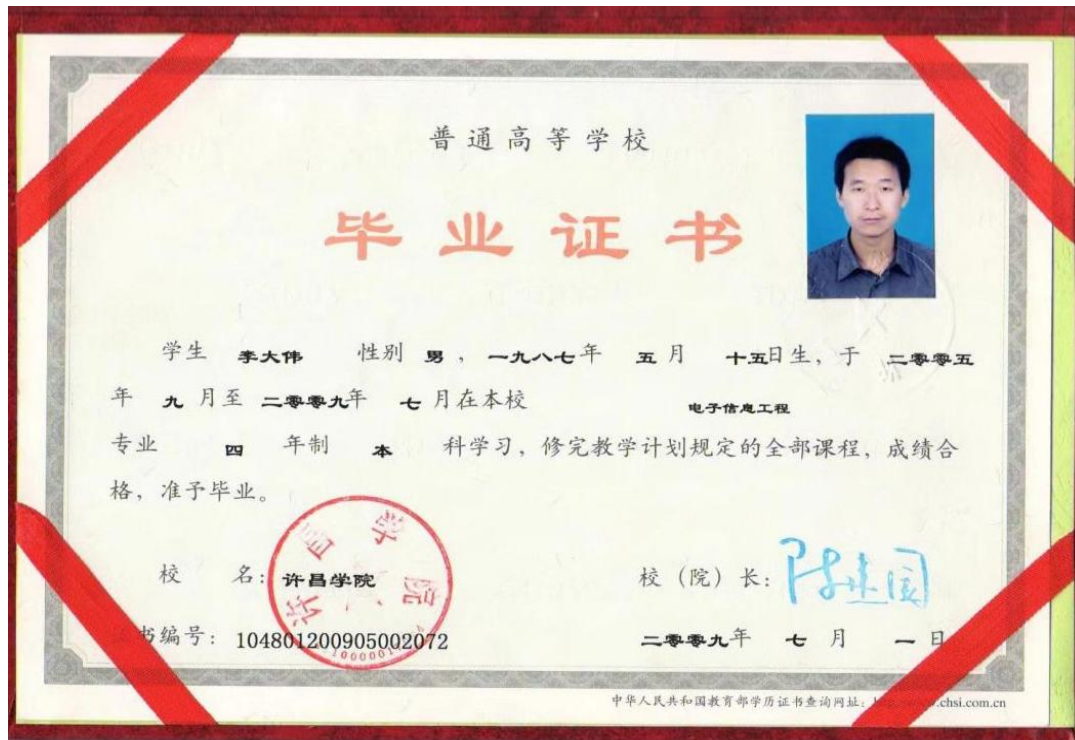 普通高等学校
毕业证书
学生 李大伟 性别 男，一九八七年 五月 十五日生，于 二零零五
年 九 月至 二零零九年 七 月在本校 电子信息工程
专业 四 年制 本 科学习，修完教学计划规定的全部课程，成绩合
格，准予毕业。
许昌学院
校 名：许昌学院 校（院）长：陈建国
书编号：104801200905002072 二零零九年 七 月 一 日
中华人民共和国教育部学历证书查询网址：.chsi.com.cn